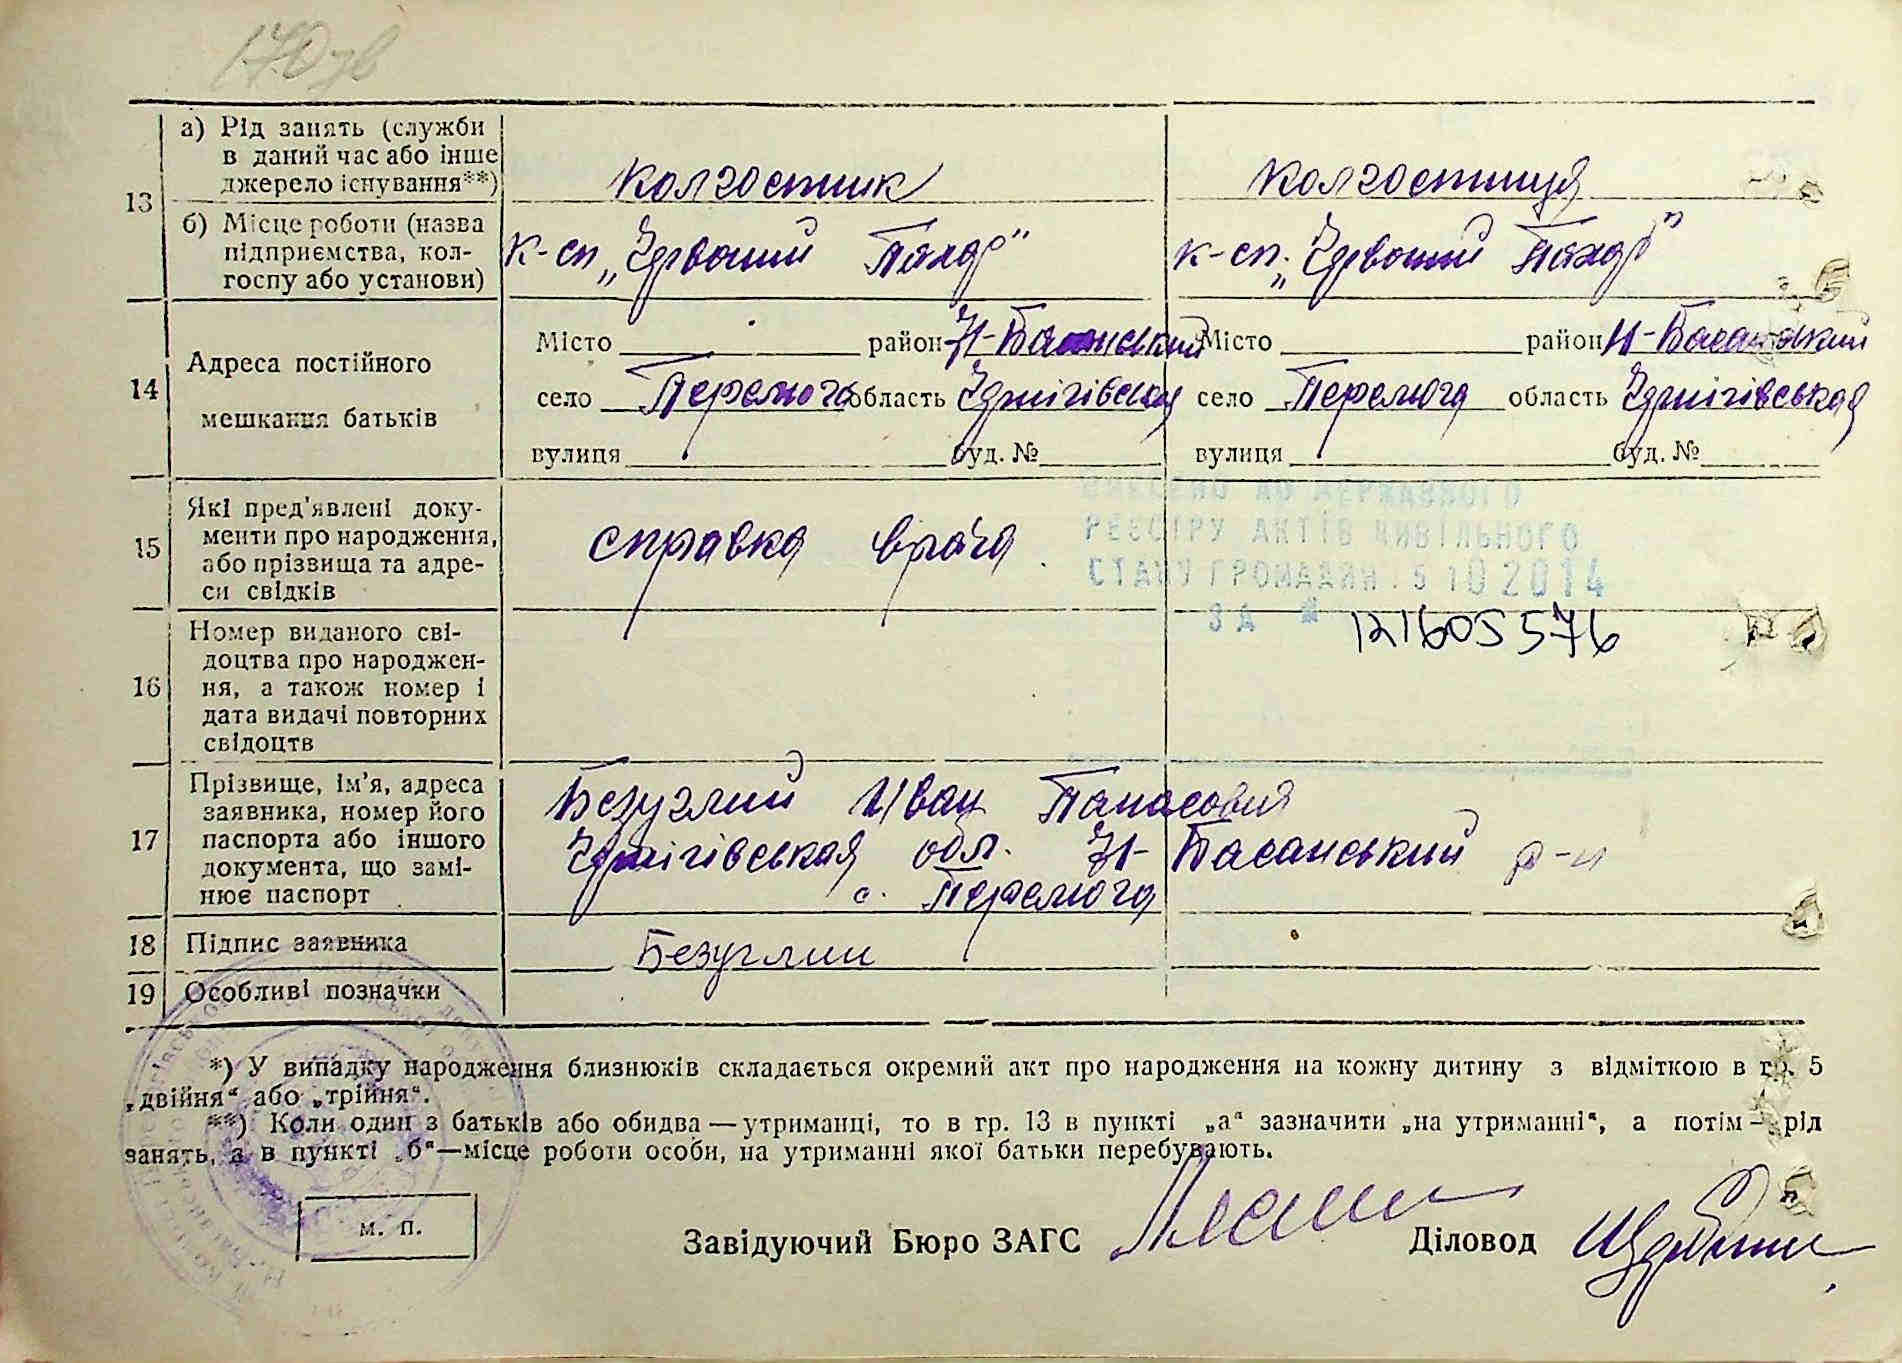 170 зв
а) Рід занять (служби колгостник колгостниця
в даний час або інше
13 джерело існування**)
б) Місце роботи (назва к-сп „Червоний Пахар" к-сп. „Червоний Пахар"
підприємства, кол-
госпу або установи)
Місто район Н-Басанський Місто район Н-Басанський
14 Адреса постійного село Перемога область Чернігівская село Перемога область Чернігівськая
мешкання батьків
вулиця буд. № вулиця буд. №
Які пред'явлені доку-
15 менти про народження, справка врача
або прізвища та адре-
си свідків
ВНЕСЕНО ДО ДЕРЖАВНОГО
РЕЄСТРУ АКТІВ ЦИВІЛЬНОГО
СТАНУ ГРОМАДЯН 15 10 2014
ЗА № 121605576
Номер виданого сві-
доцтва про народжен-
16 ня, а також номер і
дата видачі повторних
свідоцтв
Прізвище, ім'я, адреса Безуглий Иван Панасович
заявника, номер його
17 паспорта або іншого Чернігівськая обл. Н-Басанський р-н
документа, що замі- с. Перемога
нює паспорт
18 Підпис заявника Безуглий
19 Особливі позначки
*) У випадку народження близнюків складається окремий акт про народження на кожну дитину з відміткою в гр. 5
„двійня" або „трійня".
**) Коли один з батьків або обидва — утриманці, то в гр. 13 в пункті „а" зазначити „на утриманні", а потім — рід
занять, а в пункті „б"—місце роботи особи, на утриманні якої батьки перебувають.
м. п.
Завідуючий Бюро ЗАГС Діловод